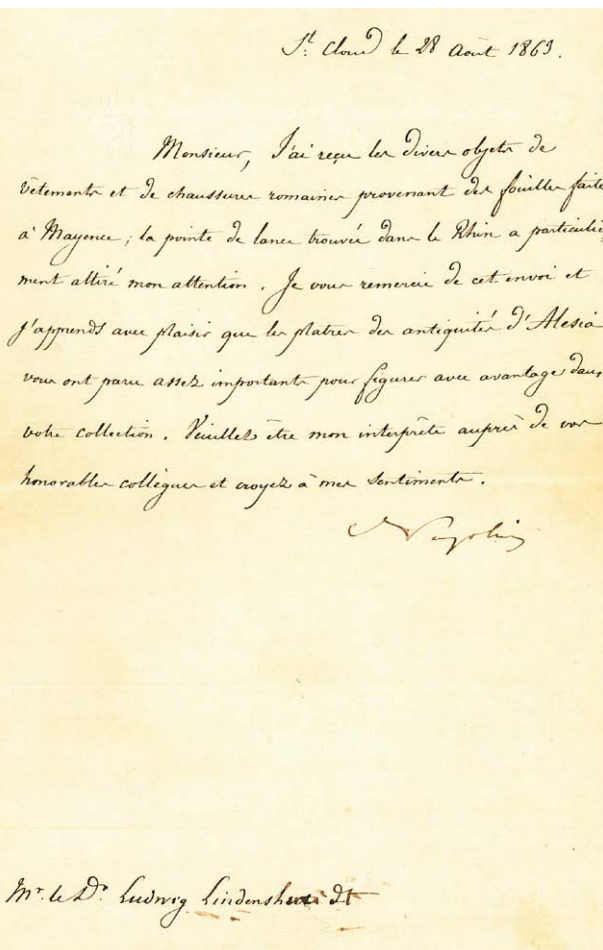 St. Cloud le 28 Août 1863.
Monsieur, J'ai reçu les divers objets de
vêtements et de chaussures romaines provenant des fouilles faite
à Mayence; la pointe de lance trouvée dans le Rhin a particuliè
ment attiré mon attention. Je vous remercie de cet envoi et
j'apprends avec plaisir que les platres des antiquités d'Alesia
vous ont paru assez importants pour figurer avec avantage dans
votre collection. Veuillez être mon interprête auprès de vos
honorables collègues et croyez à mes sentiments.
Napoléon
Mr. le Dr. Ludwig Lindenshmidt